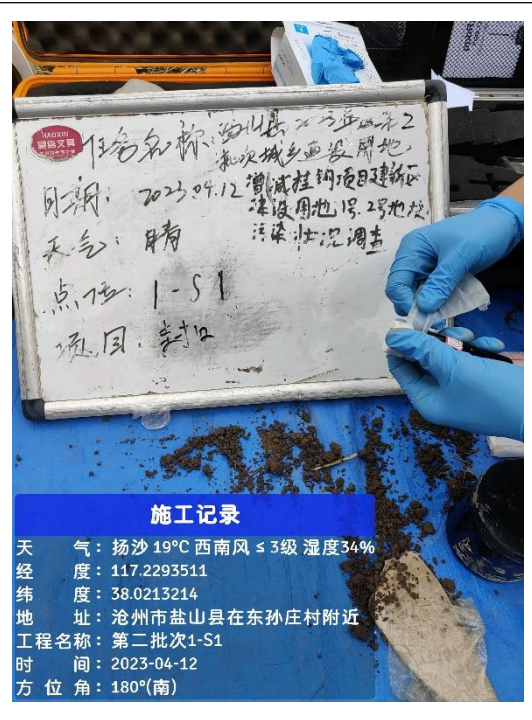 HAOXIN
昊信文具
任务名称:盐山县2023年度第2
批次城乡建设用地
日期: 2023.04.12 增减挂钩项目建新区
建设用地1号.2号地块
天气: 晴 污染状况调查
点位: 1-S1
项目: 封口
施工记录
天 气:扬沙 19℃ 西南风 ≤ 3级 湿度34%
经 度:117.2293511
纬 度:38.0213214
地 址:沧州市盐山县在东孙庄村附近
工程名称:第二批次1-S1
时 间:2023-04-12
方 位 角:180°(南)